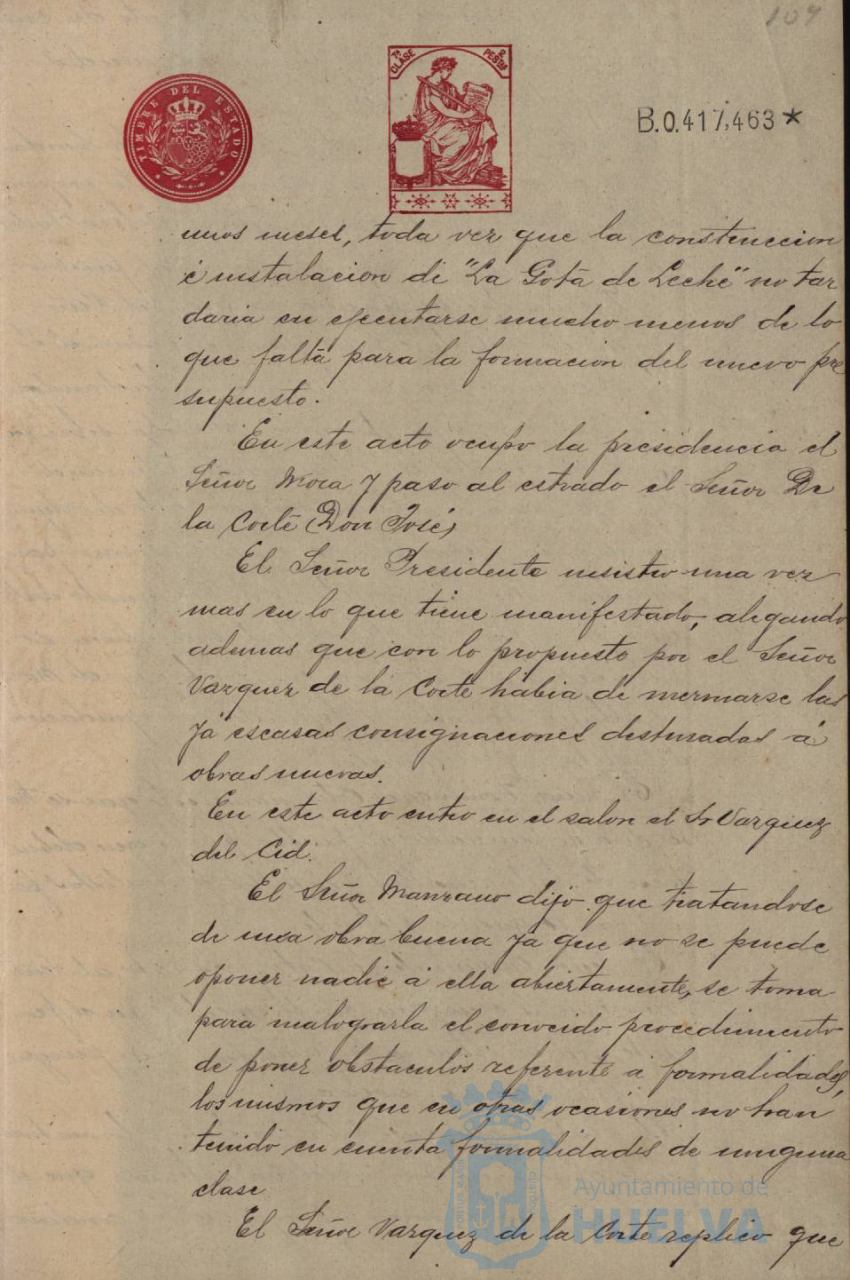 107
TIMBRE DEL ESTADO
7ª CLASE 2 PESTAS
B.0.417,463 *
unos meses, toda vez que la construccion
é instalacion de "La Gota de Leche" no tar
daria en ejecutarse mucho menos de lo
que falta para la formacion del nuevo pre
supuesto.
En este acto ocupo la presidencia el
Señor Mora y paso al estrado el Señor De
la Corte (Don José)
El Señor Presidente insistio una vez
mas en lo que tiene manifestado, alegando
ademas que con lo propuesto por el Señor
Vazquez de la Corte habia de mermarse las
ya escasas consignaciones destinadas á
obras nuevas.
En este acto entro en el salon el Sr Vazquez
del Cid.
El Señor Manzano dijo que tratandose
de una obra buena ya que no se puede
oponer nadie á ella abiertamente, se toma
para malograrla el conocido procedimiento
de poner obstaculos referente á formalidades,
los mismos que en otras ocasiones no han
tenido en cuenta formalidades de ninguna
clase
El Señor Vazquez de la Corte replico que
Ayuntamiento de
HUELVA